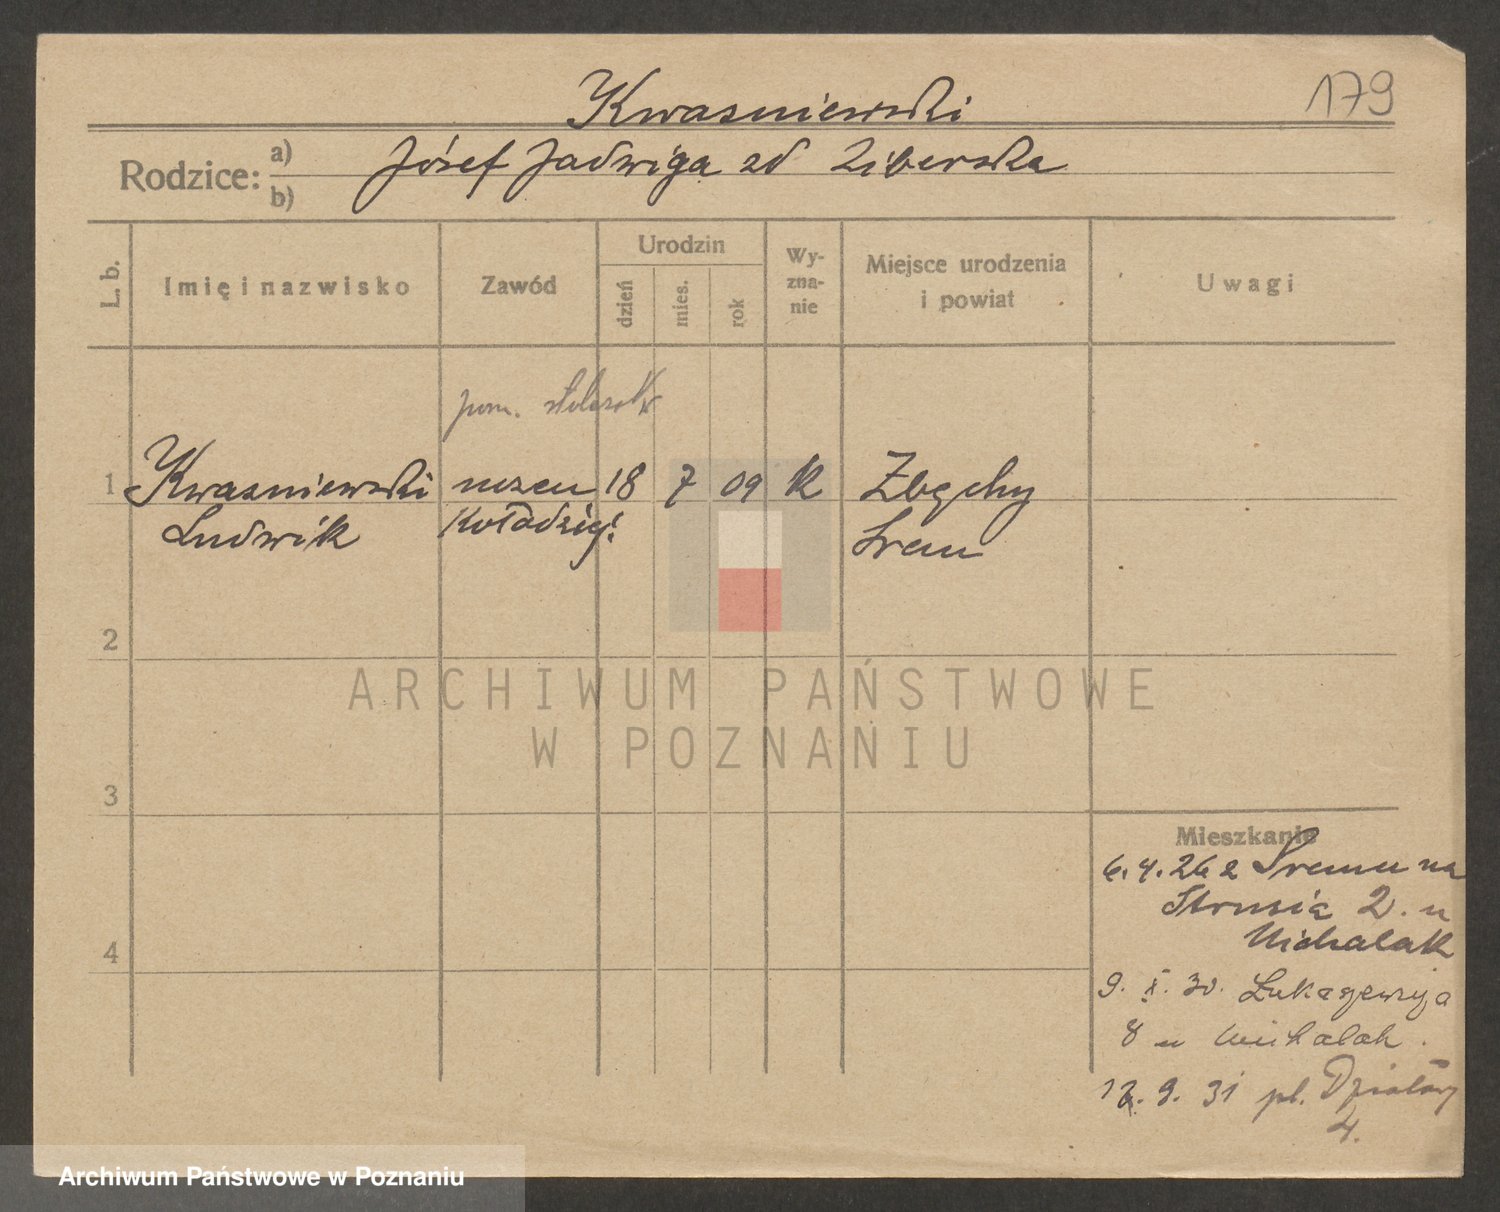 179
Kwasniewski
Rodzice:
a) Józef Jadwiga zd Liberska
b)
L. b.
Imię i nazwisko
Zawód
Urodzin
dzień
mies.
rok
Wy-
zna-
nie
Miejsce urodzenia
i powiat
Uwagi
pom. stolarski
1 Kwasniewski uczeń 18 7 09 k Zbęchy
Ludwik kołodziej. Śrem
2
ARCHIWUM PAŃSTWOWE
W POZNANIU
3
Mieszkanie
6.4.26 z Śremu na
Strusia 2. u
Michalak
4
9. X. 30. Łukaszewicza
8 u Michalak.
12. 9. 31 pl. Działowy
4.
Archiwum Państwowe w Poznaniu